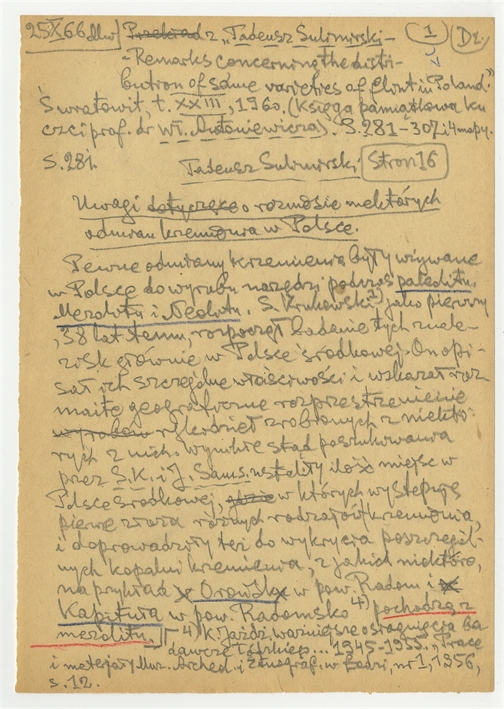 25 X 66 Mw Przekład z „Tadeusz Sulimirski – 1 Dz.
– Remarks concerning the distri-
bution of some varieties of flint in Poland."
Światowit, t. XXIII, 1960. (Księga pamiątkowa ku
czci prof. dr Wł. Antoniewicza). S. 281–307 i 4 mapy.
S. 281. Tadeusz Sulimirski Stron 16
Uwagi dotyczące o roznosie niektórych
odmian krzemienia w Polsce.
Pewne odmiany krzemienia były używane
w Polsce do wyrobu narzędzi podczas paleolitu,
mezolitu i neolitu. S. Krukowski jako pierwszy
, 38 lat temu, rozpoczął badanie tych znale-
zisk głównie w Polsce środkowej. On opi-
sał ich szczególne właściwości i wskazał roz-
maite geograficzne rozprzestrzenienie
wyrobów rękodzieł zrobionych z niektó-
rych z nich. Wynikłe stąd poszukiwania
przez S. K. i J. Sams. ustaliły ilość miejsc w
Polsce środkowej, gdzie w których występują
pierwsze złoża różnych rodzajów krzemienia,
i doprowadziły też do wykrycia poszczegól-
nych kopalni krzemienia, z jakich niektóre,
na przykład Orońsko w pow. Radom i
Kapituła w pow. Radomsko 4) pochodzą z
mezolitu. 4) K. Jażdż. ważniejsze osiągnięcia ba-
dawcze łódzkiego ... 1945–1955, „Prace
i materjały Muz. Archeol. i Etnograf. w Łodzi, nr 1, 1956,
s. 12.